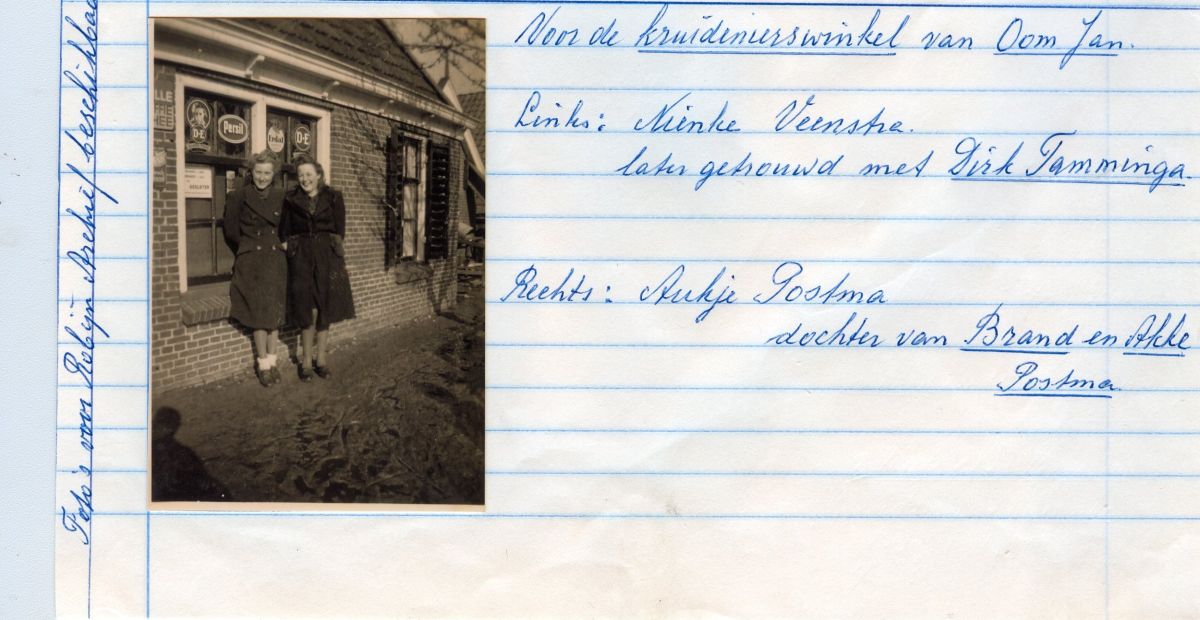 Voor de kruidenierswinkel van Oom Jan.
Links: Nienke Veenstra.
later getrouwd met Dirk Tamminga.
Rechts: Aukje Postma
dochter van Brand en Akke
Postma.
Foto's voor Robijn Archief beschikbaa
D·E
Persil
D·E
GESLOTEN